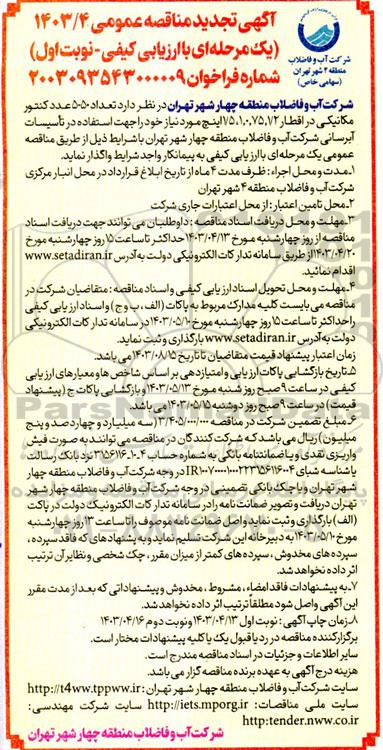 آگهی تجدید مناقصه عمومی ۱۴۰۳/۴
(یک مرحله‌ای با ارزیابی کیفی - نوبت اول)
شماره فراخوان ۲۰۰۳۰۹۳۵۴۳۰۰۰۰۰۹
شرکت آب و فاضلاب
منطقه ۴ شهر تهران
(سهامی خاص)
شرکت آب و فاضلاب منطقه چهار شهر تهران در نظر دارد تعداد ۵۰۵۰ عدد کنتور
مکانیکی در اقطار
اینچ مورد نیاز خود را جهت استفاده در تأسیسات
آبرسانی شرکت آب و فاضلاب منطقه چهار شهر تهران با شرایط ذیل از طریق مناقصه
عمومی یک مرحله‌ای با ارزیابی کیفی به پیمانکار واجد شرایط واگذار نماید.
۱ـ مدت و محل اجراء : ظرف مدت ۴ ماه از تاریخ ابلاغ قرارداد در محل انبار مرکزی
شرکت آب و فاضلاب منطقه ۴ شهر تهران
۲ـ محل تامین اعتبار : از محل اعتبارات جاری شرکت
۳ـ مهلت و محل دریافت اسناد مناقصه : داوطلبان می توانند جهت دریافت اسناد
مناقصه از روز چهارشنبه مورخ ۱۴۰۳/۰۴/۱۳ حداکثر تا ساعت ۱۵ روز چهارشنبه مورخ
۱۴۰۳/۰۴/۲۰ از طریق سامانه تدارکات الکترونیکی دولت به آدرس www.setadiran.ir
اقدام نمائید.
۴ـ مهلت و محل تحویل اسناد ارزیابی کیفی و اسناد مناقصه : متقاضیان شرکت در
مناقصه می بایست کلیه مدارک مربوط به پاکات (الف، ب و ج) و اسناد ارزیابی کیفی
را حداکثر تا ساعت ۱۵ روز چهارشنبه مورخ ۱۴۰۳/۰۵/۱۰ در سامانه تدارکات الکترونیکی
دولت به آدرس www.setadiran.ir بارگذاری و ثبت نماید.
زمان اعتبار پیشنهاد قیمت متقاضیان تا تاریخ ۱۴۰۳/۰۸/۱۵ می باشد.
۵ـ تاریخ بازگشایی پاکات ارزیابی و امتیازدهی بر اساس شاخص ها و معیارهای ارزیابی
کیفی در ساعت ۹ صبح روز شنبه مورخ ۱۴۰۳/۰۵/۱۳ و بازگشایی پاکات ج (پیشنهاد
قیمت) در ساعت ۹ صبح روز دوشنبه ۱۴۰۳/۰۵/۱۵ می باشد.
۶ـ مبلغ تضمین شرکت در مناقصه ۳/۴۰۵/۰۰۰/۰۰۰ (سه میلیارد و چهارصد و پنج
میلیون) ریال می باشد که شرکت کنندگان در مناقصه می توانند به صورت فیش
واریزی نقدی و یا ضمانتنامه بانکی به شماره حساب
نزد بانک رسالت
یا شناسه شبای
در وجه شرکت آب و فاضلاب منطقه چهار
شهر تهران و یا چک بانکی تضمینی در وجه شرکت آب و فاضلاب منطقه چهار شهر
تهران دریافت و تصویر ضمانت نامه را در سامانه تدارکات الکترونیک دولت در پاکت
(الف) بارگذاری و ثبت نماید و اصل ضمانت نامه موصوف را تا ساعت ۱۳ روز چهارشنبه
مورخ ۱۴۰۳/۰۵/۱۰ به دبیرخانه این شرکت تسلیم نماید و به پشنهادهای که فاقد سپرده،
سپرده های مخدوش، سپرده های کمتر از میزان مقرر، چک شخصی و نظایر آن ترتیب
اثر داده نخواهد شد.
۷ـ به پیشنهادات فاقد امضاء، مشروط، مخدوش و پیشنهاداتی که بعد از مدت مقرر
این آگهی واصل شود مطلقاً ترتیب اثر داده نخواهد شد.
۸ـ زمان چاپ آگهی : نوبت اول ۱۴۰۳/۰۴/۱۳ و نوبت دوم ۱۴۰۳/۰۴/۱۶
برگزارکننده مناقصه در رد یا قبول یک یا کلیه پیشنهادات مختار است.
سایر اطلاعات و جزئیات در اسناد مناقصه مندرج است.
هزینه درج آگهی به عهده برنده مناقصه گزار می باشد.
سایت شرکت آب و فاضلاب منطقه چهار شهر تهران : http://t4ww.tppww.ir
سایت ملی مناقصات: http://iets.mporg.ir سایت شرکت مهندسی:
http:tender.nww.co.ir
شرکت آب و فاضلاب منطقه چهار شهر تهران